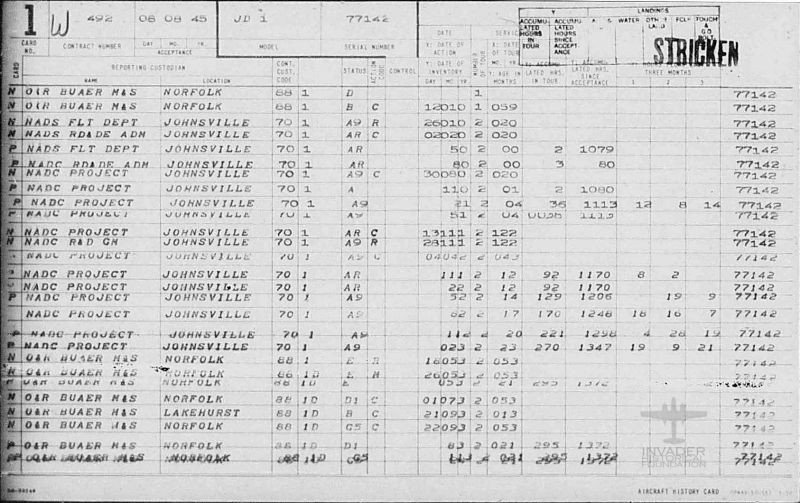 1 W 492 08 08 45 JD 1 77142
CARD NO. CONTRACT NUMBER DAY MO. YR. ACCEPTANCE MODEL SERIAL NUMBER
STRICKEN
LANDINGS
WATER
AIRCRAFT HISTORY CARD
REPORTING CUSTODIAN CONT. CUST. CODE STATUS ACTION CODE CONTROL
CARD NAME LOCATION
THREE MONTHS
1 2 3
N O&R BUAER M&S NORFOLK 88 1 D 1 77142
N O&R BUAER M&S NORFOLK 88 1 B C 12010 1 059 77142
N NADS FLT DEPT JOHNSVILLE 70 1 A9 R 26010 2 020 77142
N NADS RD&DE ADM JOHNSVILLE 70 1 AR C 02020 2 020 77142
P NADS FLT DEPT JOHNSVILLE 70 1 AR 50 2 00 2 1079 77142
P NADC RD&DE ADM JOHNSVILLE 70 1 AR 80 2 00 3 80 77142
N NADC PROJECT JOHNSVILLE 70 1 A9 C 30080 2 020 77142
P NADC PROJECT JOHNSVILLE 70 1 A 110 2 01 2 1080 77142
P NADC PROJECT JOHNSVILLE 70 1 A9 21 2 04 36 1113 12 8 14 77142
P NADC PROJECT JOHNSVILLE 70 1 A9 51 2 04 77142
N NADC PROJECT JOHNSVILLE 70 1 AR C 13111 2 122 77142
N NADC R&D GM JOHNSVILLE 70 1 A9 R 28111 2 122 77142
NADC PROJECT JOHNSVILLE 70 1 A9 C 04042 2 043 77142
NADC PROJECT JOHNSVILLE 70 1 AR 111 2 12 92 1170 8 2 77142
P NADC PROJECT JOHNSVILLE 70 1 AR 22 2 12 92 1170 77142
P NADC PROJECT JOHNSVILLE 70 1 A9 52 2 14 129 1206 19 9 77142
NADC PROJECT JOHNSVILLE 70 1 A9 82 2 17 170 1248 18 16 7 77142
P NADC PROJECT JOHNSVILLE 70 1 A9 112 2 20 221 1298 4 28 19 77142
P NADC PROJECT JOHNSVILLE 70 1 A9 023 2 23 270 1347 19 9 21 77142
N O&R BUAER M&S NORFOLK 88 1 E R 18053 2 053 77142
N O&R BUAER M&S NORFOLK 88 1D E M 26053 2 053 77142
P O&R BUAER M&S NORFOLK 88 1D E 053 2 21 295 1372 77142
N O&R BUAER M&S NORFOLK 88 1D D1 C 01073 2 053 77142
N O&R BUAER M&S LAKEHURST 88 1D B C 21093 2 013 77142
N O&R BUAER M&S NORFOLK 88 1D G5 C 22093 2 053 77142
P O&R BUAER M&S NORFOLK 88 1D D1 83 2 021 295 1372 77142
P O&R BUAER M&S NORFOLK 88 1D G5 113 2 021 295 1372 77142
INVADER
HISTORICAL
FOUNDATION